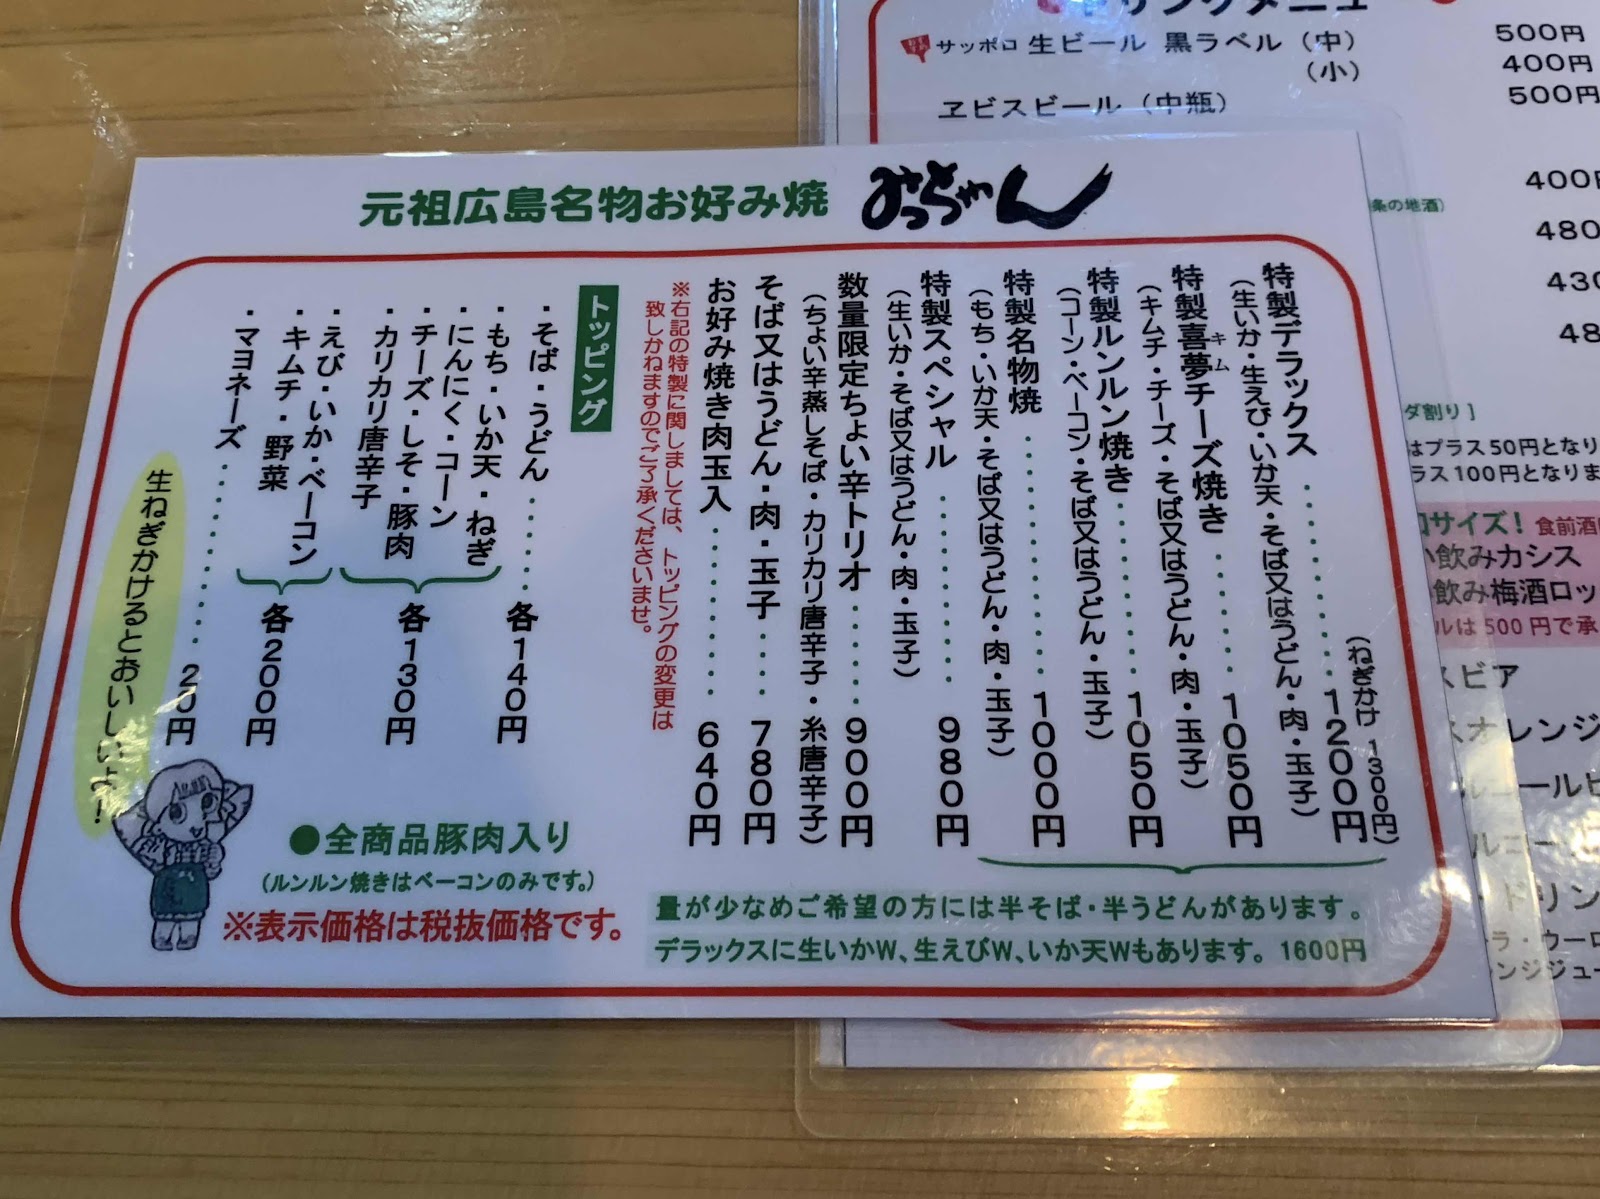 元祖広島名物お好み焼 みっちゃん
特製デラックス ‥‥‥‥ 1200円
(ねぎかけ 1300円)
(生いか・生えび・いか天・そば又はうどん・肉・玉子)
特製喜夢チーズ焼き ‥‥‥‥ 1050円
キム
(キムチ・チーズ・そば又はうどん・肉・玉子)
特製ルンルン焼き ‥‥‥‥ 1050円
(コーン・ベーコン・そば又はうどん・玉子)
特製名物焼 ‥‥‥‥ 1000円
(もち・いか天・そば又はうどん・肉・玉子)
特製スペシャル ‥‥‥‥ 980円
(生いか・そば又はうどん・肉・玉子)
数量限定ちょい辛トリオ ‥‥‥‥ 900円
(ちょい辛蒸しそば・カリカリ唐辛子・糸唐辛子)
そば又はうどん・肉・玉子 ‥‥ 780円
お好み焼き肉玉入 ‥‥‥‥ 640円
※右記の特製に関しましては、トッピングの変更は
致しかねますのでご了承くださいませ。
トッピング
・そば・うどん ‥‥‥‥ 各140円
・もち・いか天・ねぎ
・にんにく・コーン
・チーズ・しそ・豚肉
・カリカリ唐辛子
各130円
・えび・いか・ベーコン
・キムチ・野菜
各200円
・マヨネーズ ‥‥‥‥ 20円
生ねぎかけるとおいしいよ!
●全商品豚肉入り
(ルンルン焼きはベーコンのみです。)
※表示価格は税抜価格です。
量が少なめご希望の方には半そば・半うどんがあります。
デラックスに生いかW、生えびW、いか天Wもあります。1600円
ドリンクメニュー
サッポロ 生ビール 黒ラベル (中) 500円
(小) 400円
ヱビスビール (中瓶) 500円
400
条の地酒)
480
430
48
ダ割り]
はプラス50円となり
ラス100円となりま
サイズ! 食前酒
飲みカシス
飲み梅酒ロッ
ルは500円で承
スビア
スオレンジ
ルコールビ
ドリン
ラ・ウーロ
ンジジュー